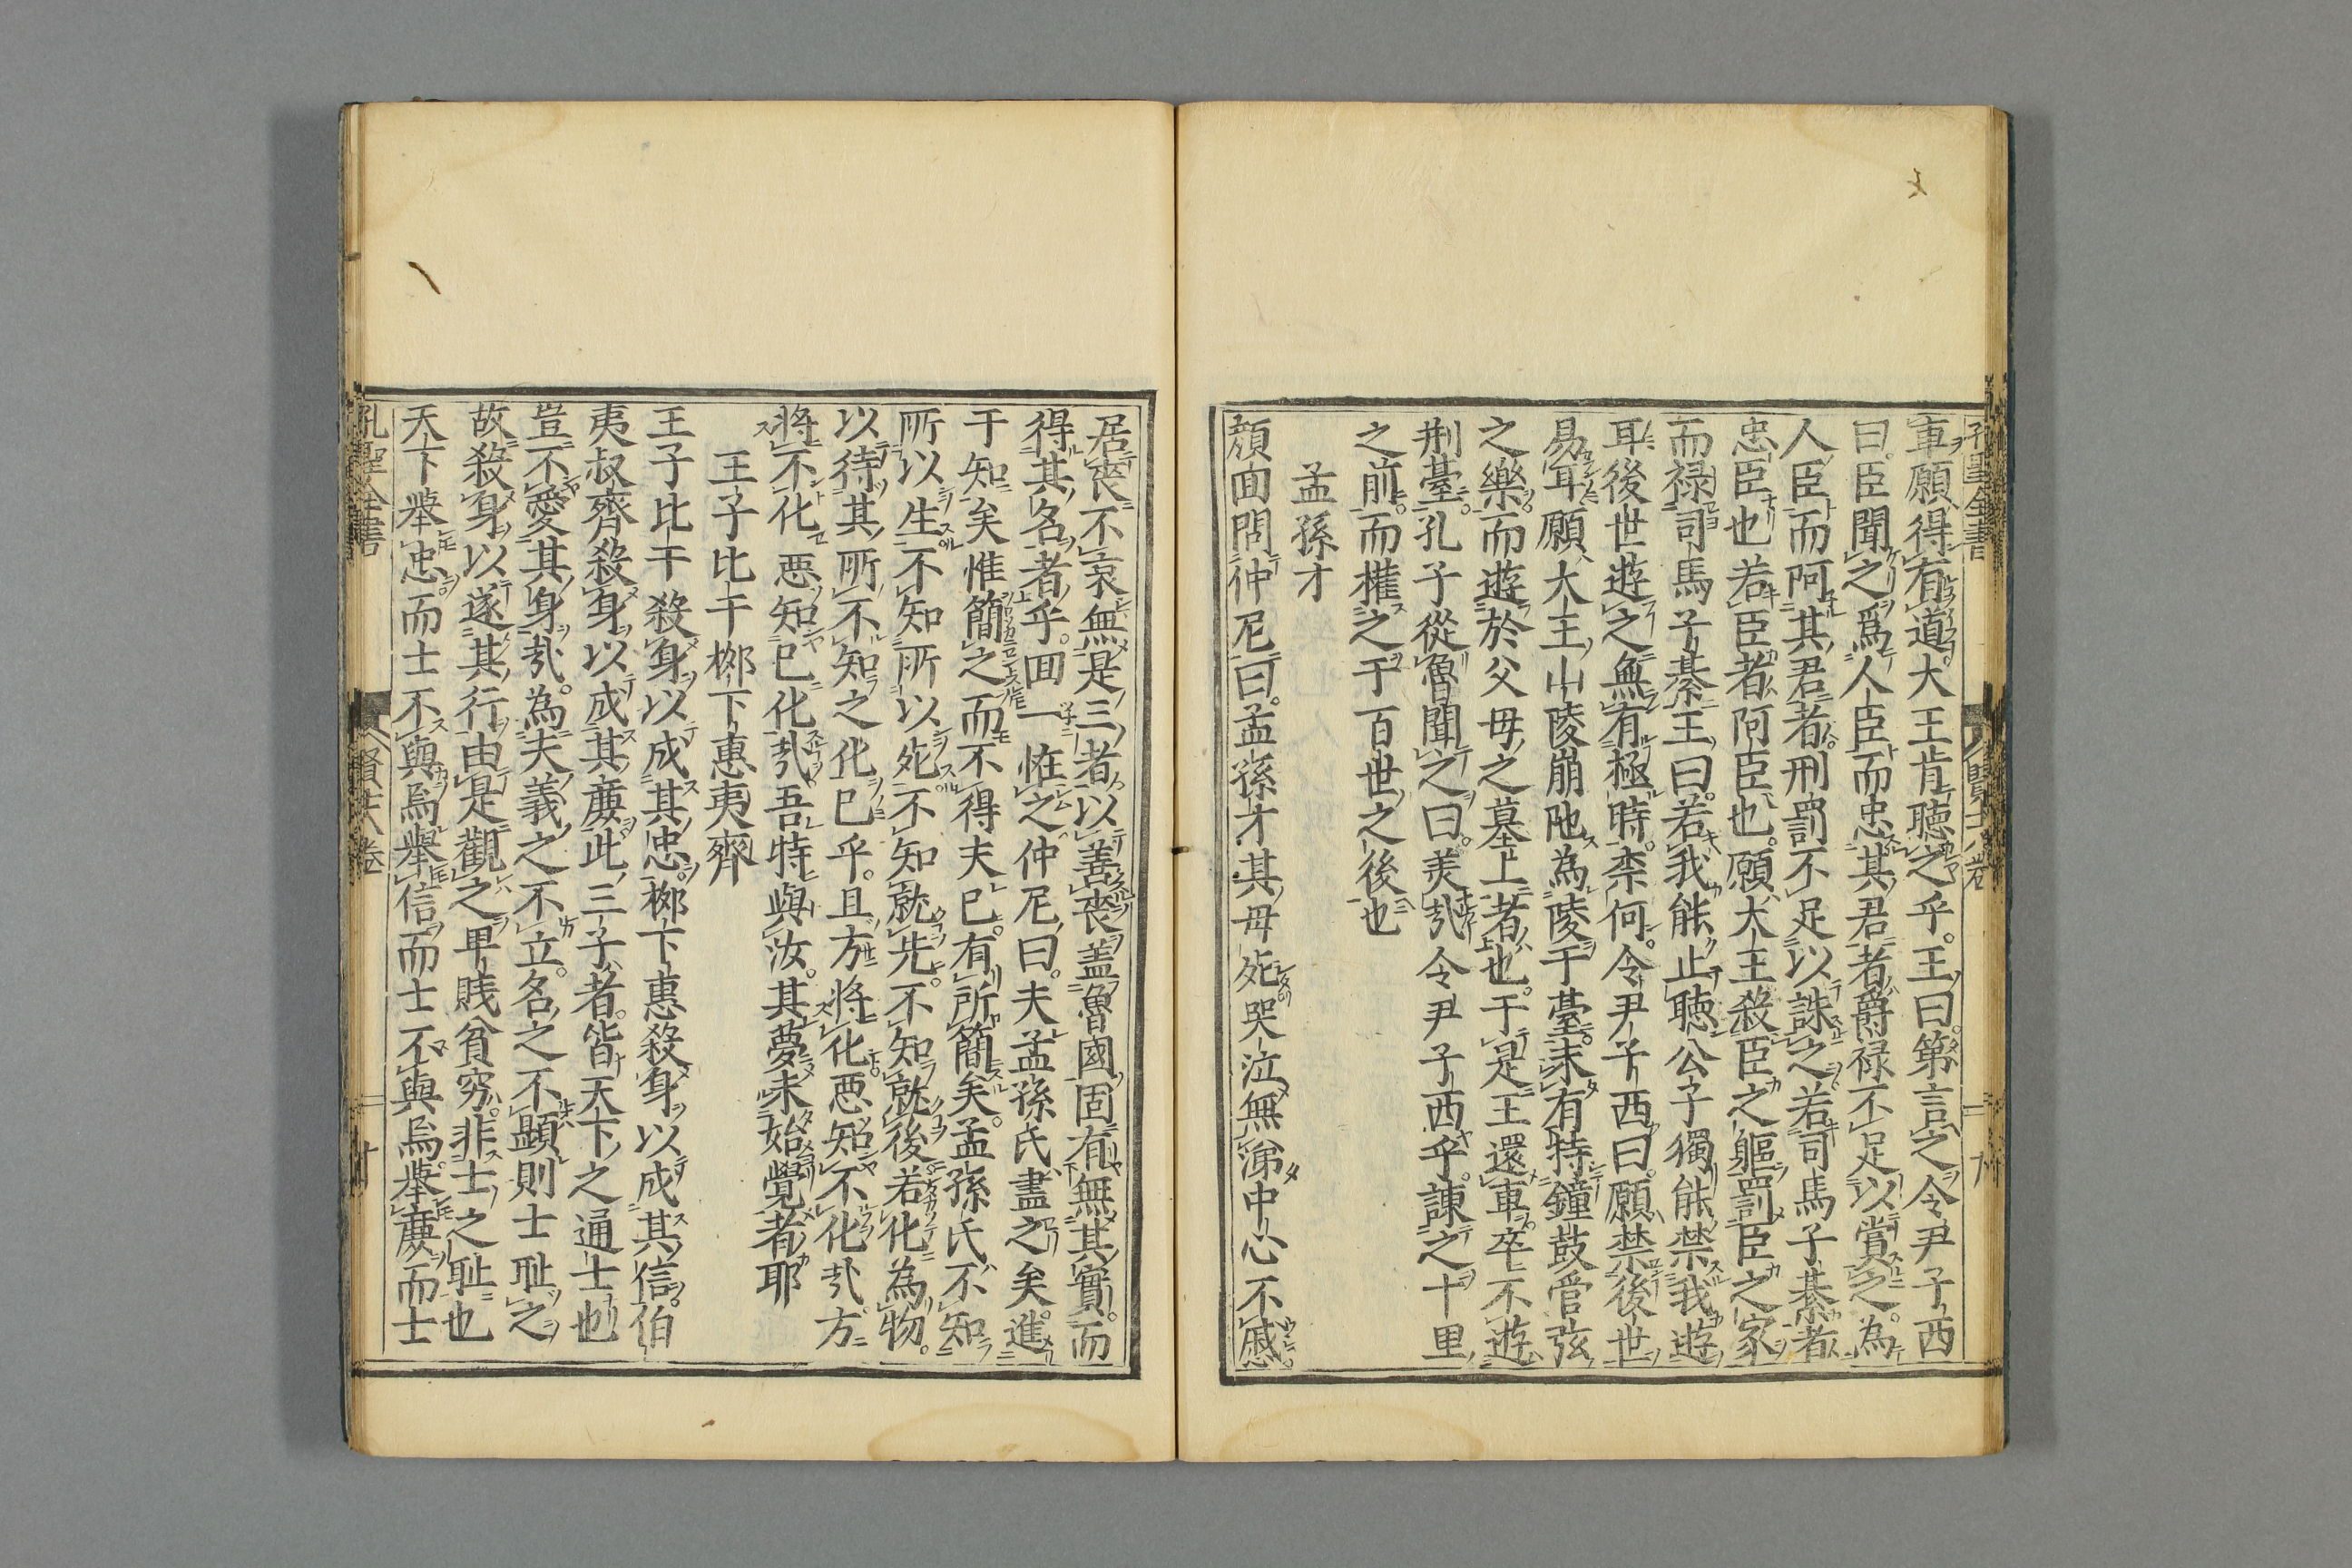 車願得有道大王肯聴之乎王曰第言之令尹子西
曰臣聞之爲人臣而忠其君者爵禄不足以賞之為
人臣而阿其君者刑罰不足以誅之若司馬子綦者
忠臣也若臣者阿臣也願大王殺臣之軀罰臣之家
而禄司馬子綦王曰若我能止聴公子獨能禁我遊
耳後世遊之無有極時柰何令尹子西曰願禁後世
易耳願大王山陵崩阤為陵于臺未有持鐘鼓管弦
之樂而遊於父母之墓上者也于是王還車卒不遊
荆臺孔子從魯聞之曰羙㢤令尹子西乎諫之十里
之前而權之于百世之後也
孟孫才
顔面問仲尼曰孟孫才其母死哭泣無涕中心不慼
居喪不哀無是三者以善喪盖魯國固有無其實而
得其名者乎回一恠之仲尼曰夫孟孫氏盡之矣進
于知矣惟簡之而不得夫已有所簡矣孟孫氏不知
所以生不知所以死不知就先不知就後若化為物
以待其所不知之化已乎且方将化悪知不化㢤方
将不化悪知已化㢤吾特與汝其夢未始覺者耶
王子比干栁下惠夷齊
王子比干殺身以成其忠栁下惠殺身以成其信伯
夷叔齊殺身以成其廉此三子者皆天下之通士也
豈不愛其身㢤為夫義之不立名之不顯則士耻之
故殺身以遂其行由是觀之卑賎貧窮非士之耻也
天下舉忠而士不與焉舉信而士不與焉舉廉而士
孔聖全書